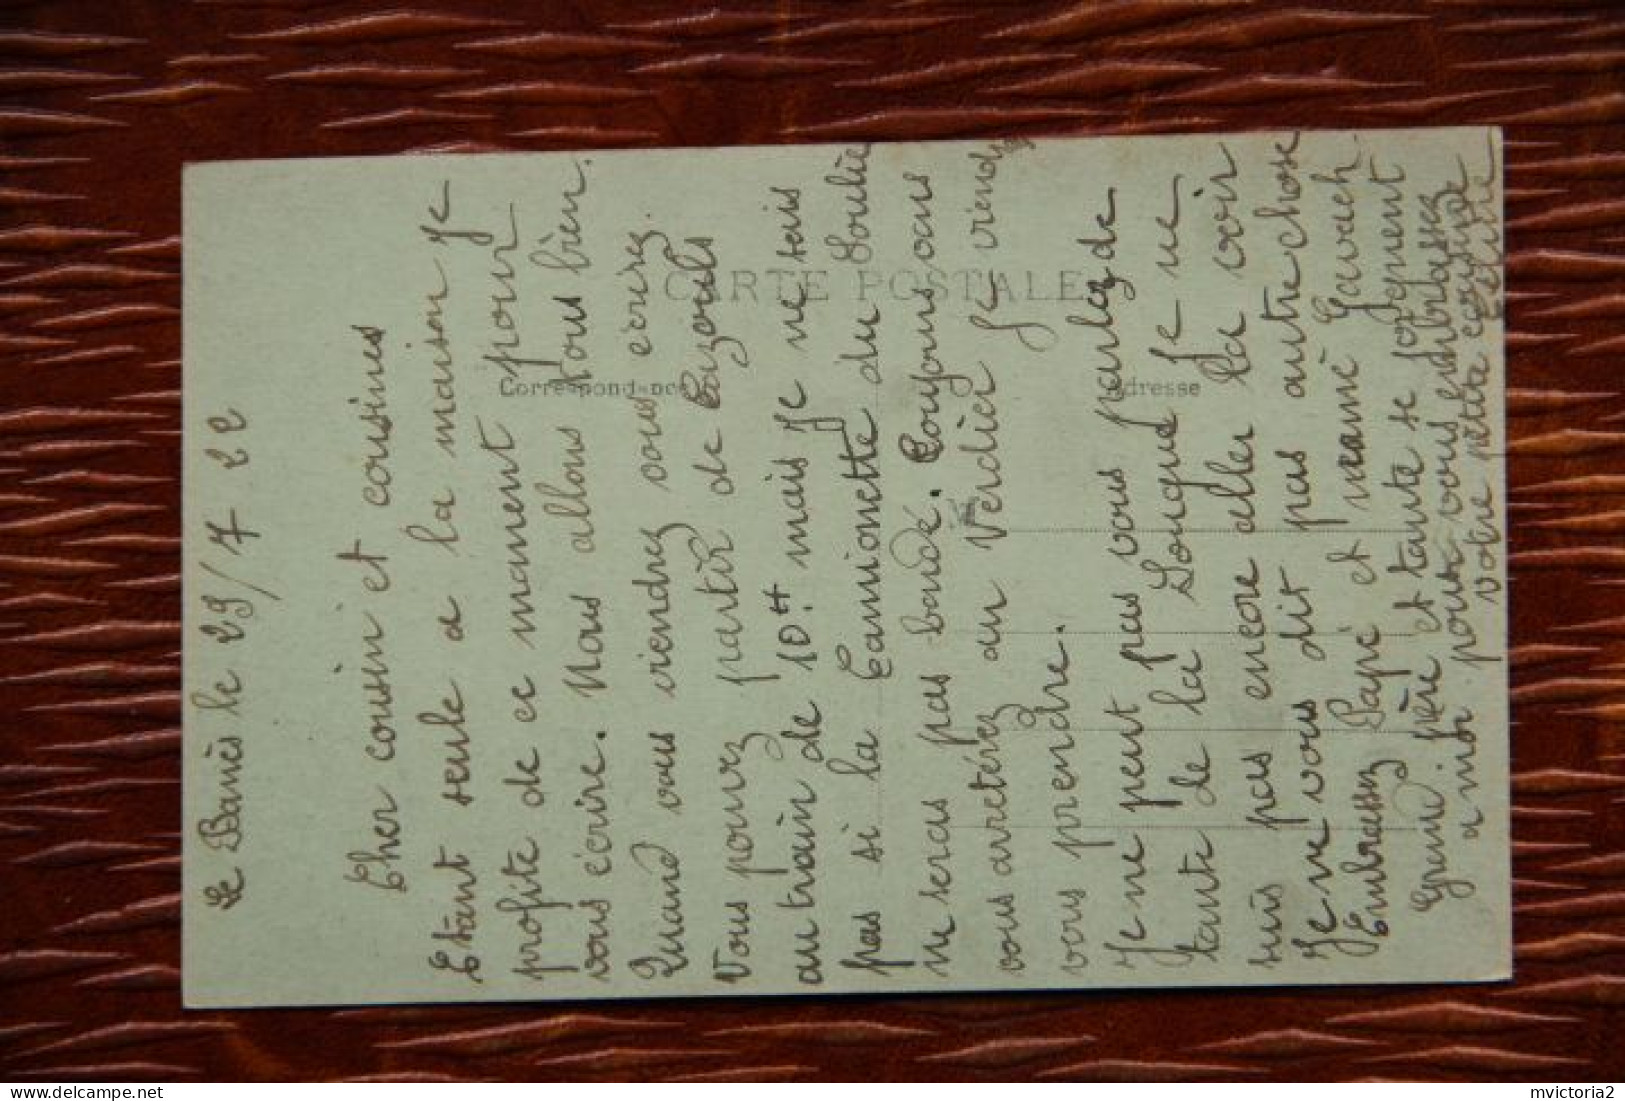 Le Banès le 29/7 22
Cher cousin et cousines
Etant seule a la maison je
profite de ce mament pour
vous écrire. Nous allons tous bien.
Quand vous viendrez vous écrirez.
Vous pourez partir de Cazouls
au train de 10.H mais je ne sais
pas si la Camionette du Soulié
ne seras pas bondé. Couyons vous
vous arretérez au Verdier je viendrez
vous prendre.
Je ne peut pas vous parlez de
tante de la Longue je ne
suis pas encore aller la voir
Je ne vous dit pas autre chose
Embrassez Papé et mamé Gavach
Grend. père et tante se joignent
a moi pour vous enbrassez
votre petite cousine
CARTE POSTALE
Correspondance
Adresse
mvictoria2